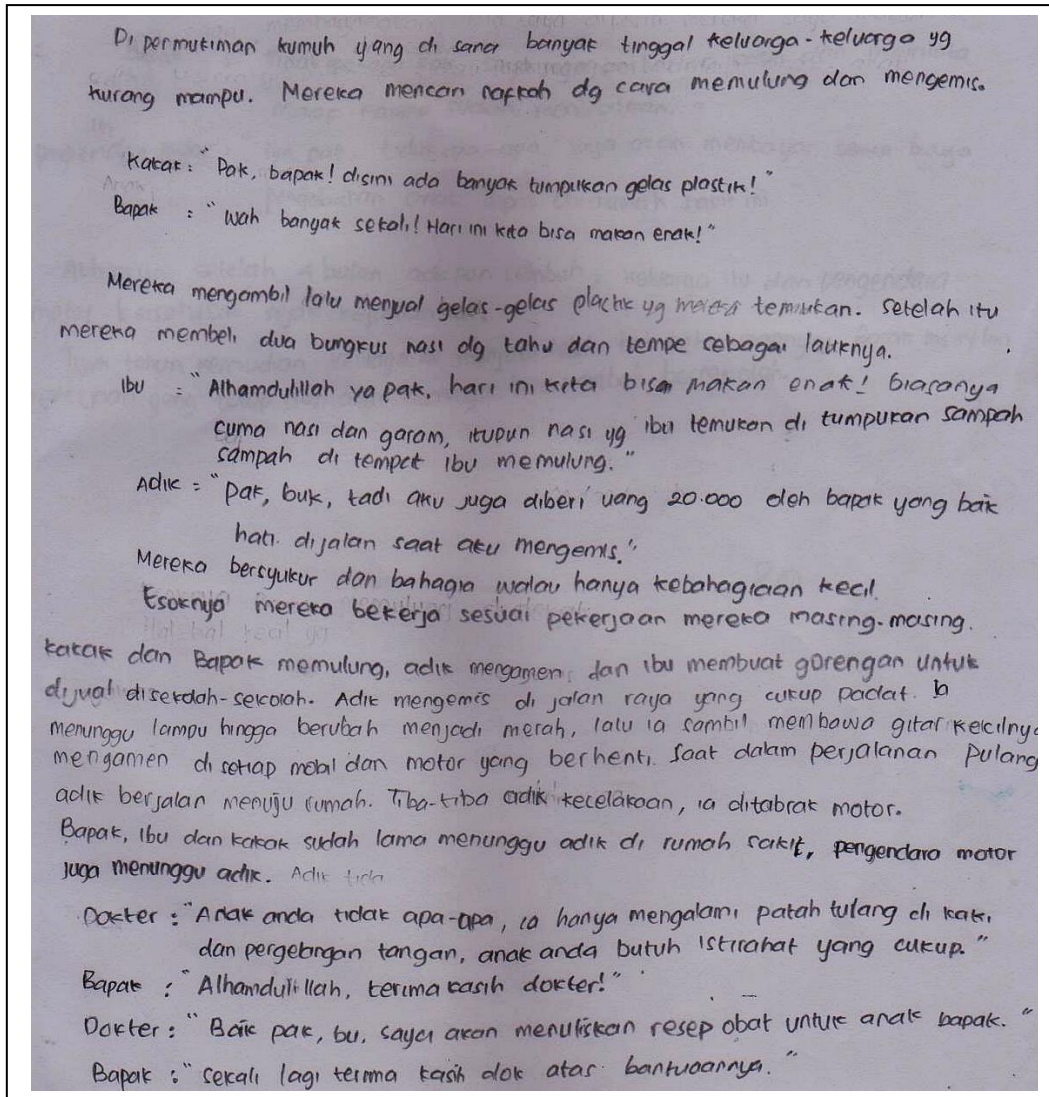 Di permukiman kumuh yang di sana banyak tinggal keluarga-keluarga yg
kurang mampu. Mereka mencari nafkah dg cara memulung dan mengemis.
Kakak : "Pak, bapak! disini ada banyak tumpukan gelas plastik!"
Bapak : "Wah banyak sekali! Hari ini kita bisa makan enak!"
Mereka mengambil lalu menjual gelas-gelas plastic yg mereka temukan. setelah itu
mereka membeli dua bungkus nasi dg tahu dan tempe sebagai lauknya.
Ibu : "Alhamdulillah ya pak, hari ini kita bisa makan enak! biasanya
cuma nasi dan garam, itupun nasi yg ibu temukan di tumpukan sampah
sampah di tempat ibu memulung."
Adik : "Pak, buk, tadi aku juga diberi uang 20.000 oleh bapak yang baik
hati dijalan saat aku mengemis."
Mereka bersyukur dan bahagia walau hanya kebahagiaan kecil.
Esoknya mereka bekerja sesuai pekerjaan mereka masing-masing.
Kakak dan Bapak memulung, adik mengamen dan ibu membuat gorengan untuk
dijual disekolah-sekolah. Adik mengemis di jalan raya yang cukup padat. Ia
menunggu lampu hingga berubah menjadi merah, lalu ia sambil membawa gitar kecilnya
mengamen di setiap mobil dan motor yang berhenti. Saat dalam perjalanan pulang
adik berjalan menuju rumah. Tiba-tiba adik kecelakaan, ia ditabrak motor.
Bapak, Ibu dan kakak sudah lama menunggu adik di rumah sakit, pengendara motor
juga menunggu adik. Adik tida
Dokter : "Anak anda tidak apa-apa, ia hanya mengalami patah tulang di kaki
dan pergelangan tangan, anak anda butuh istirahat yang cukup."
Bapak : "Alhamdulillah, terima kasih dokter!"
Dokter : "Baik pak, bu, saya akan menuliskan resep obat untuk anak bapak."
Bapak : "sekali lagi terima kasih dok atas bantuannya."